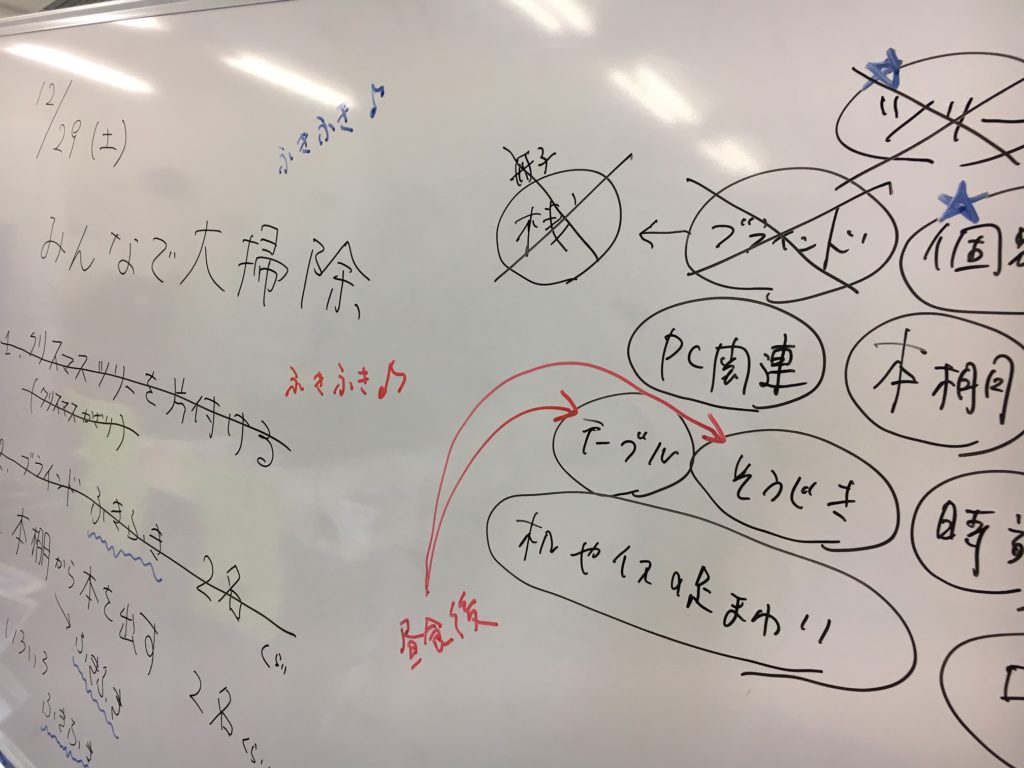 12/29(土)
ふきふき♪
みんなで大掃除
1.クリスマスツリーを片付ける
(クリスマスかざり)
ふきふき♪
2.ブラインド ふきふき 2名
ぐらい
本棚から本を出す 2名
ぐらい
→ふきふき
いろいろ
ふきふき
桟
←
ブラインド
ツリー
PC関連
本棚
テーブル
そうじき
机やイスの足まわり
昼食後